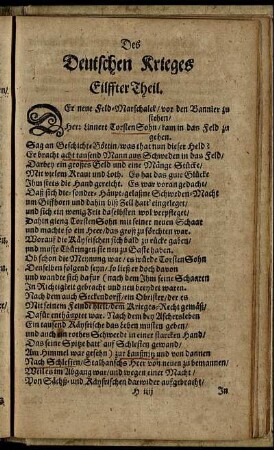 Des
Deutschen Krieges
Eilffter Theil.
DEr neue Feld-Marschalck/ vor den Bannier zu
stehen/
Herr Linnert TorstenSohn/ kam in das Feld zu
gehen.
Sag an Geschichts-Göttin/ was that nun dieser Held?
Er bracht acht tausend Mann aus Schweden in das Feld/
Darbey ein grosses Geld und eine Mänge Stücke/
Mit vielem Kraut und Loth. Es hat das gute Glücke
Ihm stets die Hand gereicht. Es war voran bedacht/
Daß sich die sonder-Häupt-gelassne Schweden-Macht
um Giffhorn und dahin biß Zell hatt' eingeleget/
und sich ein wenig Zeit daselbsten wol verpfleget/
Dahin gieng TorstenSohn mit seiner neuen Schaar
und machte so ein Heer/ das groß zu förchten war.
Woraus die Käyserschen sich bald zu rücke gaben/
und muste Thüringen sie nun zu Gaste haben.
Ob schon die Meynung war/ es würde TorstenSohn
Denselben folgend seyn/ so ließ er doch davon
und wandte sich dafür (nach dem ihm seine Schantzen
In Richtigkeit gebracht und neu beeydet waren.
Nach dem auch Seckendorff/ ein Obrister/ der es
Mit seinem Feinde hielt/ dem Krieges-Recht gemäß/
Dafür enthäuptet war. Nach dem bey Aschersleben
Ein tausend Käysersche das Leben musten geben/
und auch ein rothes Schwerdt in einer starcken Hand/
Das seine Spitze hatt' auf Schlesien gewand/
Am Himmel war gesehn) zur Lausnitz und von dannen
Nach Schlesien/ Stalhansches Heer von neuen zu bemannen/
Weil es im Abgang war/ und wegen einer Macht/
Von Sächs- und Käyserschen darwider aufgebracht/
H iiij
In